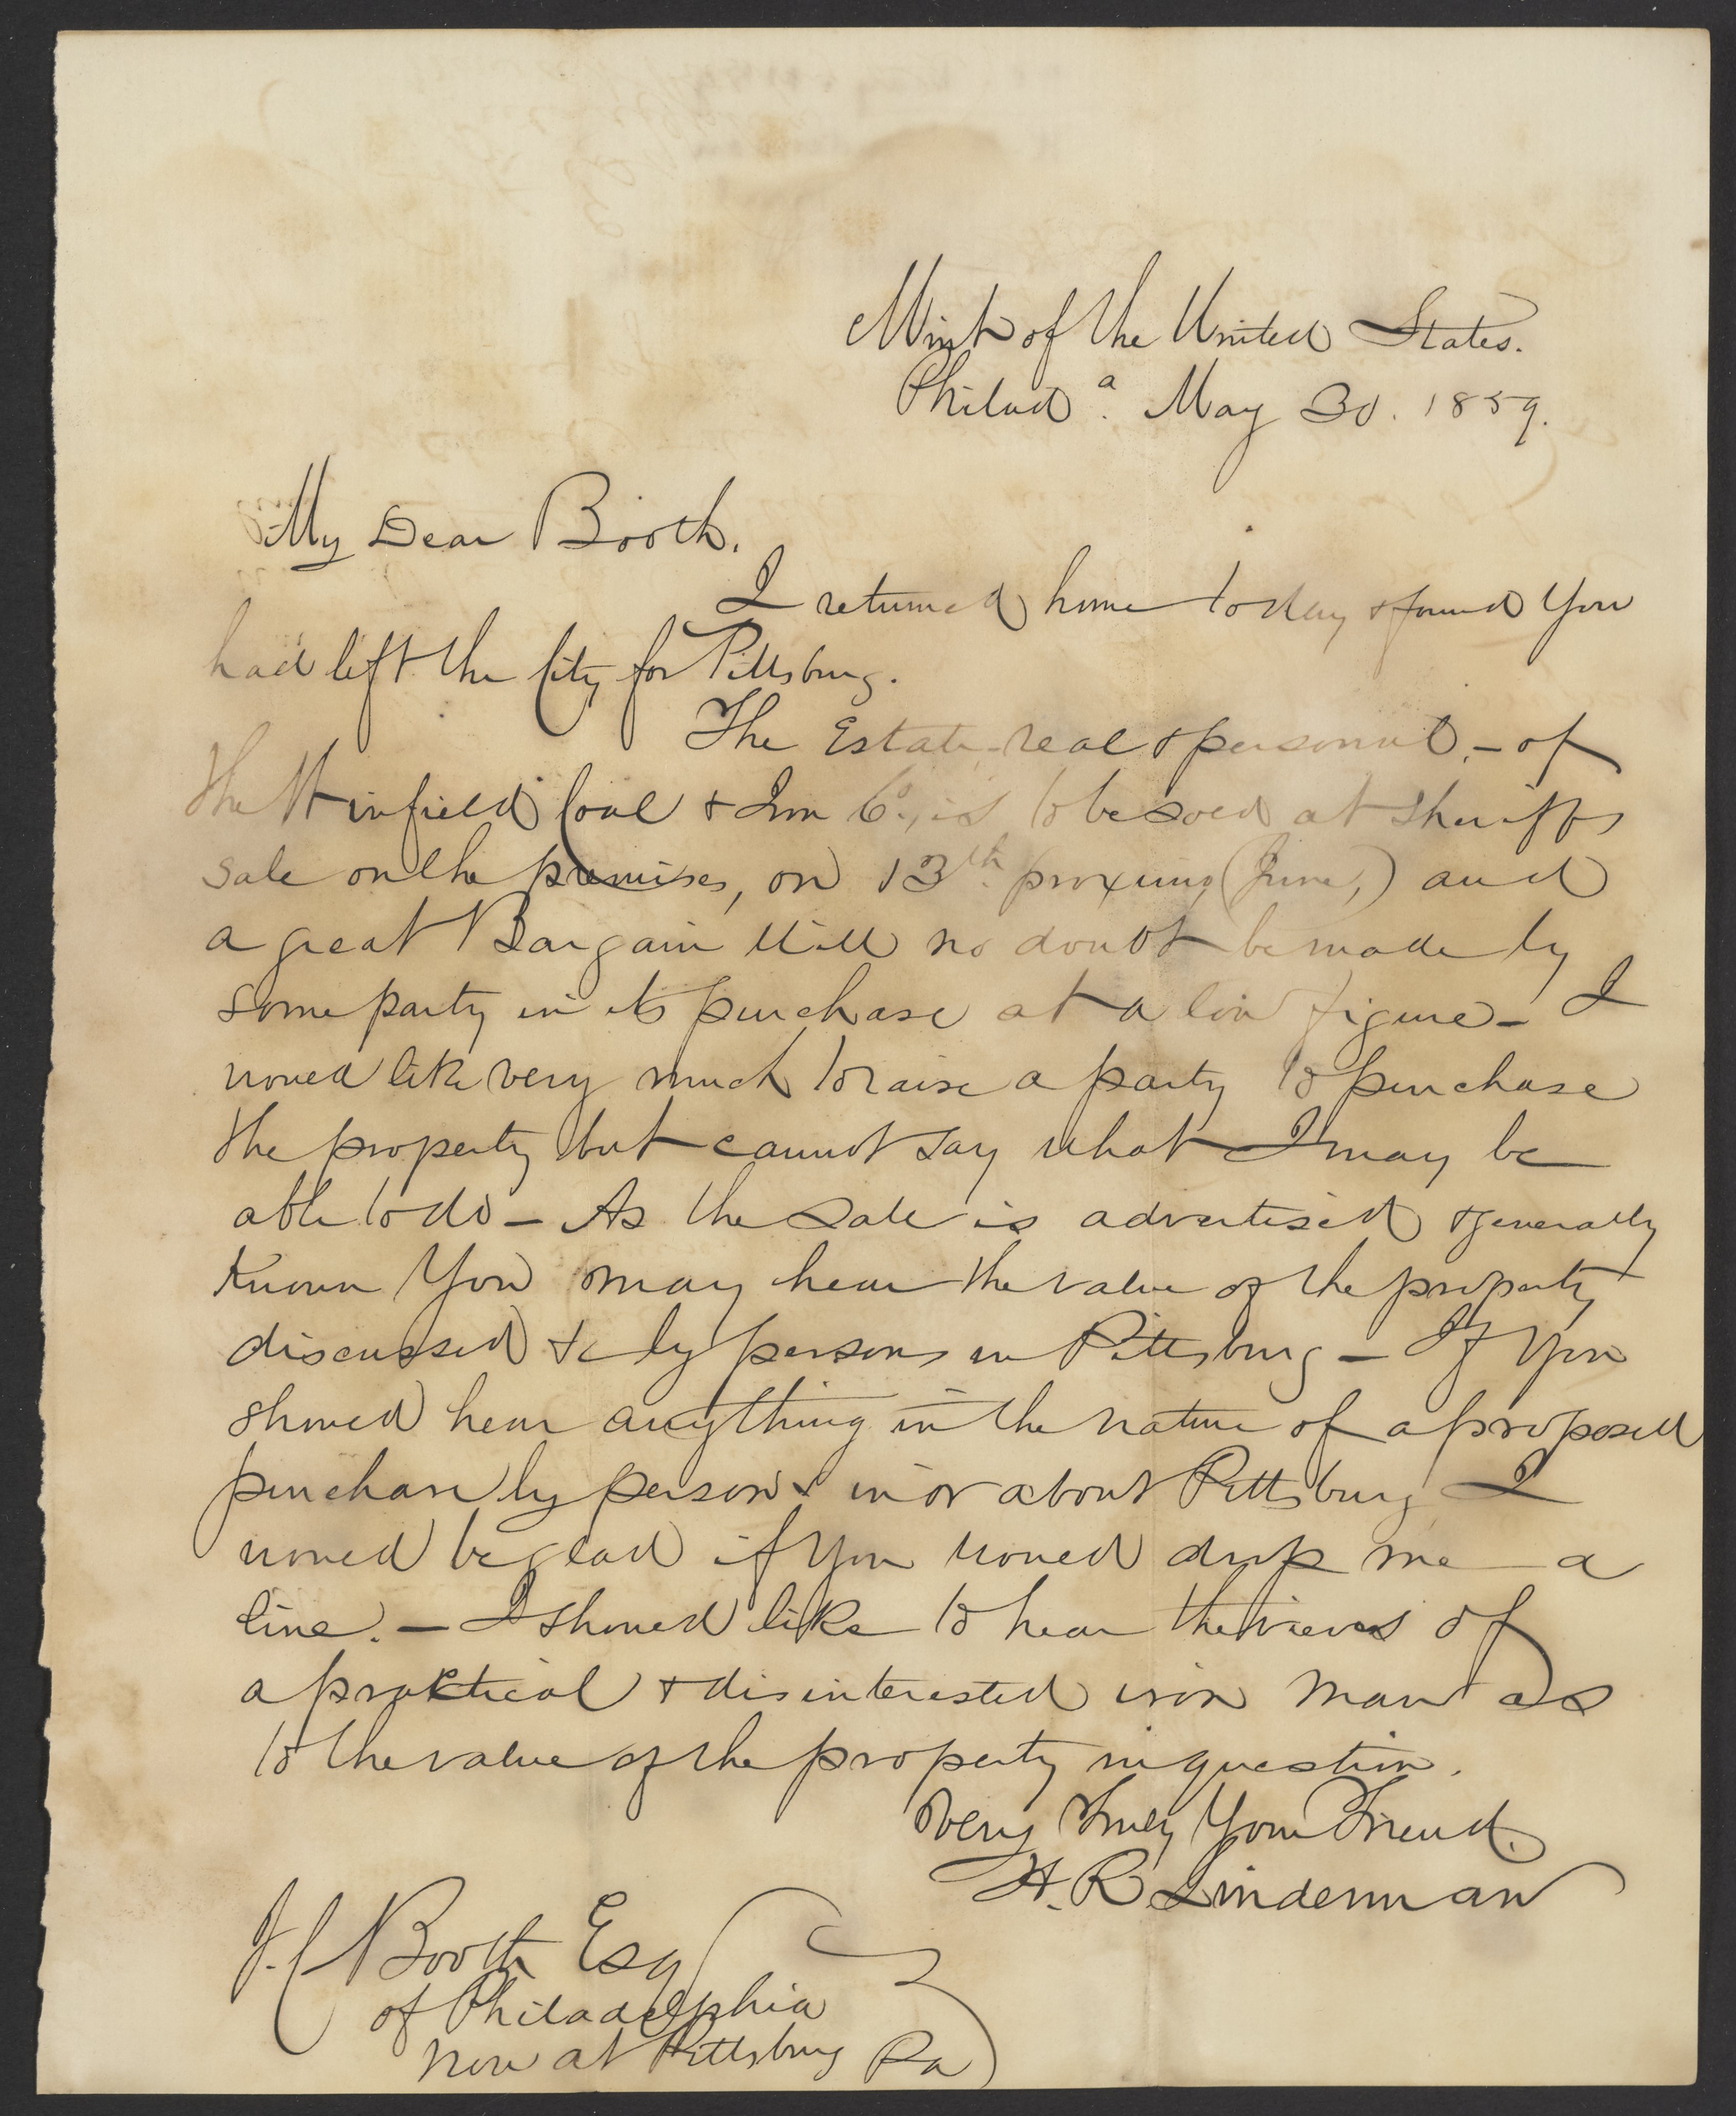 Mint of the United States.
Philada. May 30. 1859.
My Dear Booth.
I returned home today & found You
had left the City for Pittsburg.
The Estate real & personal, - of
the Winfield Coal & Iron Co., is to be sold at Sheriffs
sale on the premises, on 13th. proximo (June,) and
a great Bargain Will no doubt be made by
some party in its purchase at a low figure - I
would like very much to raise a party to purchase
the property but cannot say what I may be
able to do - As the Sale is advertised & generally
Known You may hear the value of the property
discussed &c by persons in Pittsburg - If You
should hear anything in the nature of a proposed
purchase by persons in or about Pittsburg I
would be glad if You would drop me a
line. - I should like to hear the views of
a practical & disinterested iron man as
to the value of the property in question.
Very Truly Your Friend.
H. R. Linderman
J. C. Booth Esq
of Philadelphia
now at Pittsburg Pa